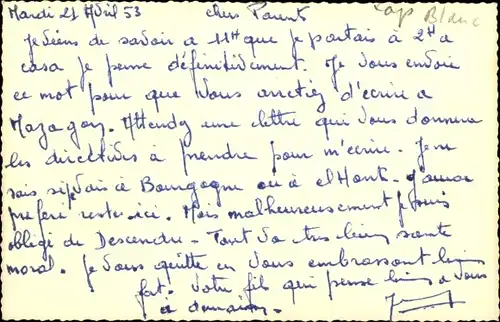 Mardi 21 Avril 53 chers Parents Cap Blanc
Je viens de savoir a 11H que je partais à 2H a
casa je pense définitivement. Je vous envoie
ce mot pour que vous arretiez d'ecrire a
Mazagan. Attendez une lettre qui vous donnera
les directives à prendre pour m'ecrire. Je ne
sais si je vais à Bourgogne ou à el Hank. J'aurais
préféré rester ici. Mais malheureusement je suis
obligé de Descendre - Tout va tres bien sante
moral. Je vous quitte en vous embrassant bien
fort. Votre fils qui pense bien a vous
à demain.